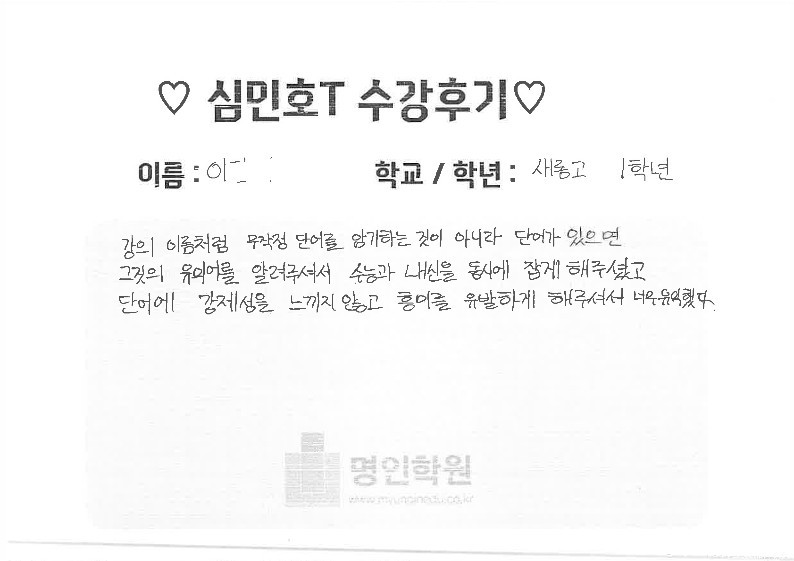 ♡ 심민호T 수강후기♡
이름 : 이
학교 / 학년 : 새롬고 1학년
강의 이름처럼 무작정 단어를 암기하는 것이 아니라 단어가 있으면
그것의 유의어를 알려주셔서 수능과 내신을 동시에 잡게 해주셨고
단어에 강제성을 느끼지 않고 흥미를 유발하게 해주셔서 너무 유익했다.
명인학원
www.myunginedu.co.kr